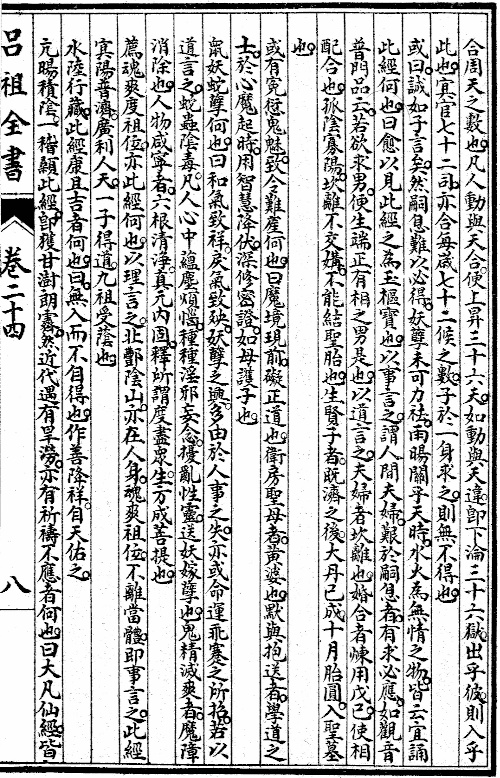 合周天之數也凡人動與天合便上昇三十六天如動與天違卽下淪三十六獄出乎彼則入乎
此也冥官七十二司亦合每歲七十二候之數子於一身求之則無不得也
或曰誠如子言矣然嗣息難以必得妖孽未可力祛雨暘關乎天時水火為無情之物皆云宜誦
此經何也曰愈以見此經之為玉樞寶也以事言之謂人間夫婦艱於嗣息者有求必應如觀音
普門品云若欲求男便生端正有相之男是也以道言之夫婦者坎離也婚合者煉用戊己使相
配合也孤陰寡陽坎離不交媾不能結聖胎也生賢子者旣濟之後大丹已成十月胎圓入聖墓
也
或有冤愆鬼魅致令難產何也曰魔境現前礙正道也衛房聖母者黃婆也默與抱送者學道之
士於心魔起時用智慧降伏深修密證如母護子也
鼠妖蛇孽何也曰和氣致祥戾氣致殃妖孽之興多由於人事之失亦或命運乖蹇之所招若以
道言之蛇蟲陰毒凡人心中蘊塵煩惱種種淫邪妄念擾亂性靈送妖嫁孽也鬼精滅爽者魔障
消除也人物咸寧者六根清淨真元內固釋所謂度盡眾生方成菩提也
薦魂爽度祖位亦此經何也以理言之北酆陰山亦在人身魂爽祖位不離當體卽事言之此經
冥陽普濟廣利人天一子得道九祖受蔭也
水陸行藏此經康且吉者何也曰無入而不自得也作善降祥自天佑之
亢暘積陰一稽顙此經卽獲甘澍朗霽然近代遇有旱澇亦有祈禱不應者何也曰大凡仙經皆
呂祖全書
卷二十四
八